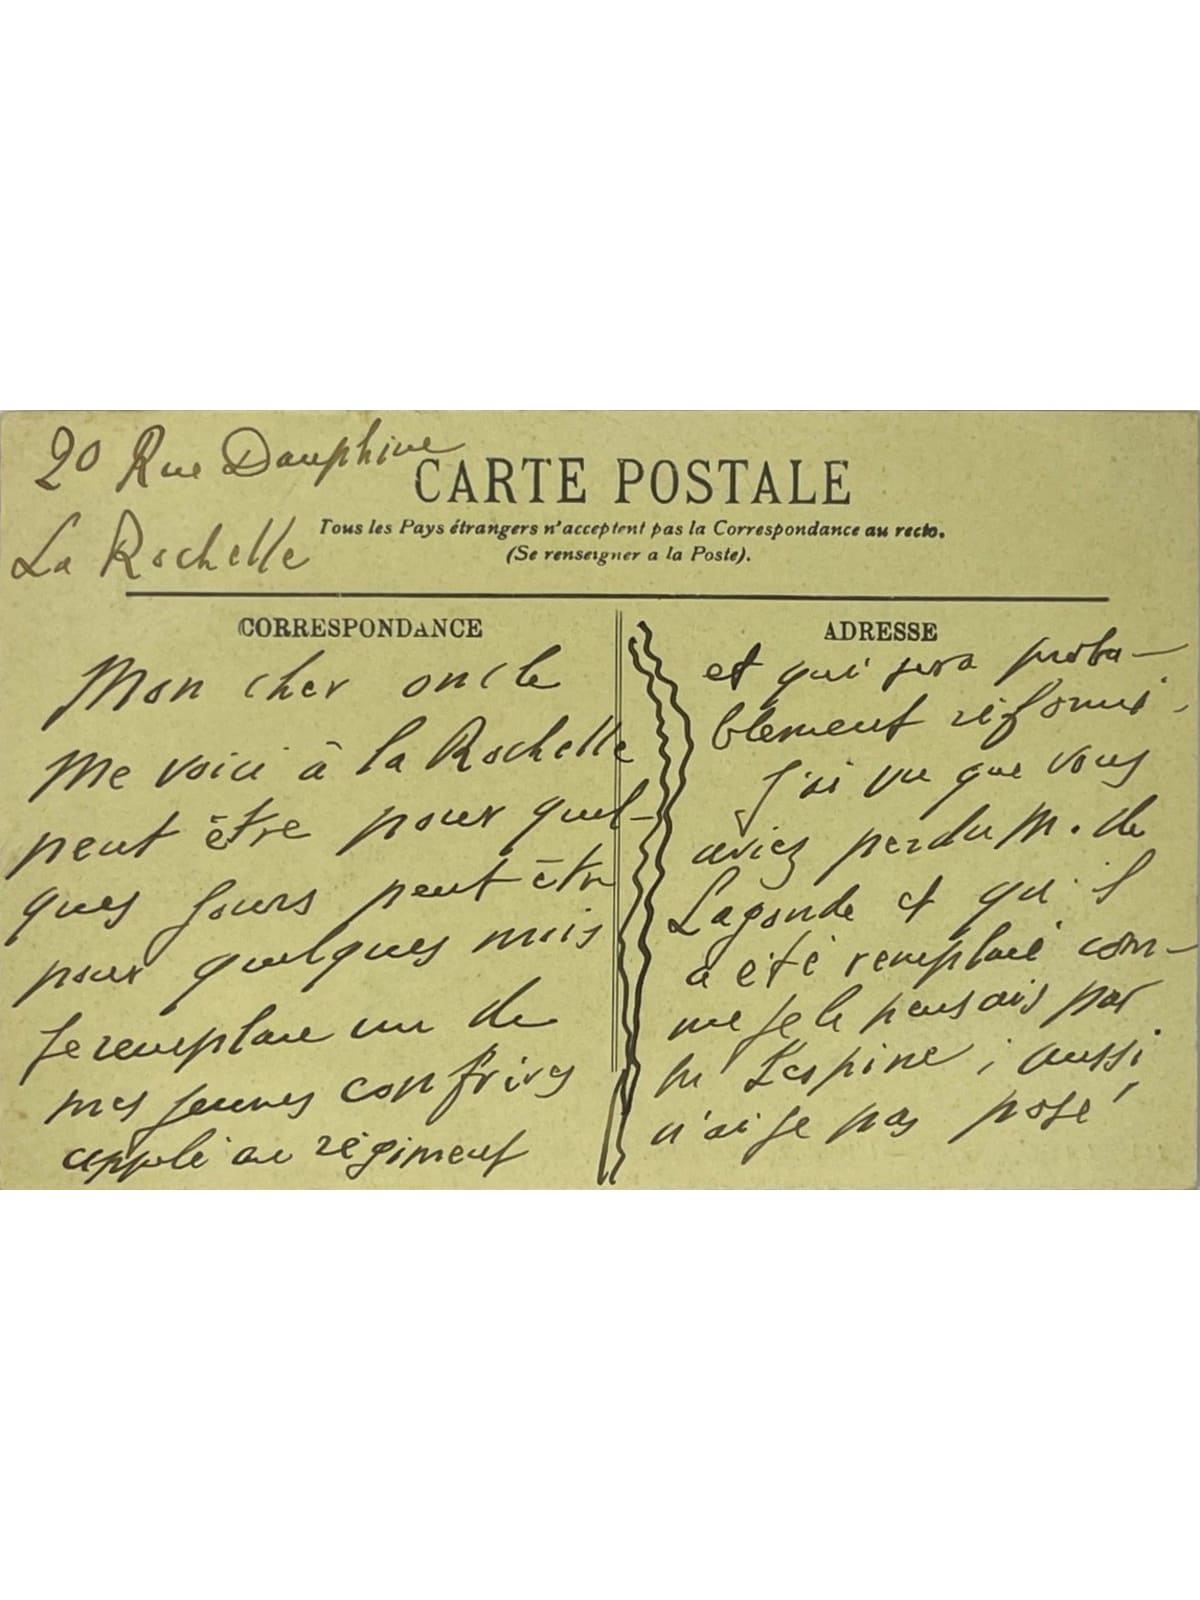 20 Rue Dauphine
La Rochelle
CARTE POSTALE
Tous les Pays étrangers n'acceptent pas la Correspondance au recto.
(Se renseigner a la Poste).
CORRESPONDANCE
Mon cher oncle
Me voici à la Rochelle
peut être pour quel-
ques jours peut être
pour quelques mois
Je remplace un de
mes jeunes confrères
appelé au régiment
ADRESSE
et qui sera proba-
blement réformé.
J'ai vu que vous
aviez perdu M. de
Lagonde et qu'il
a été remplacé com-
me je le pensais par
M Lespine ; aussi
n'ai je pas posé